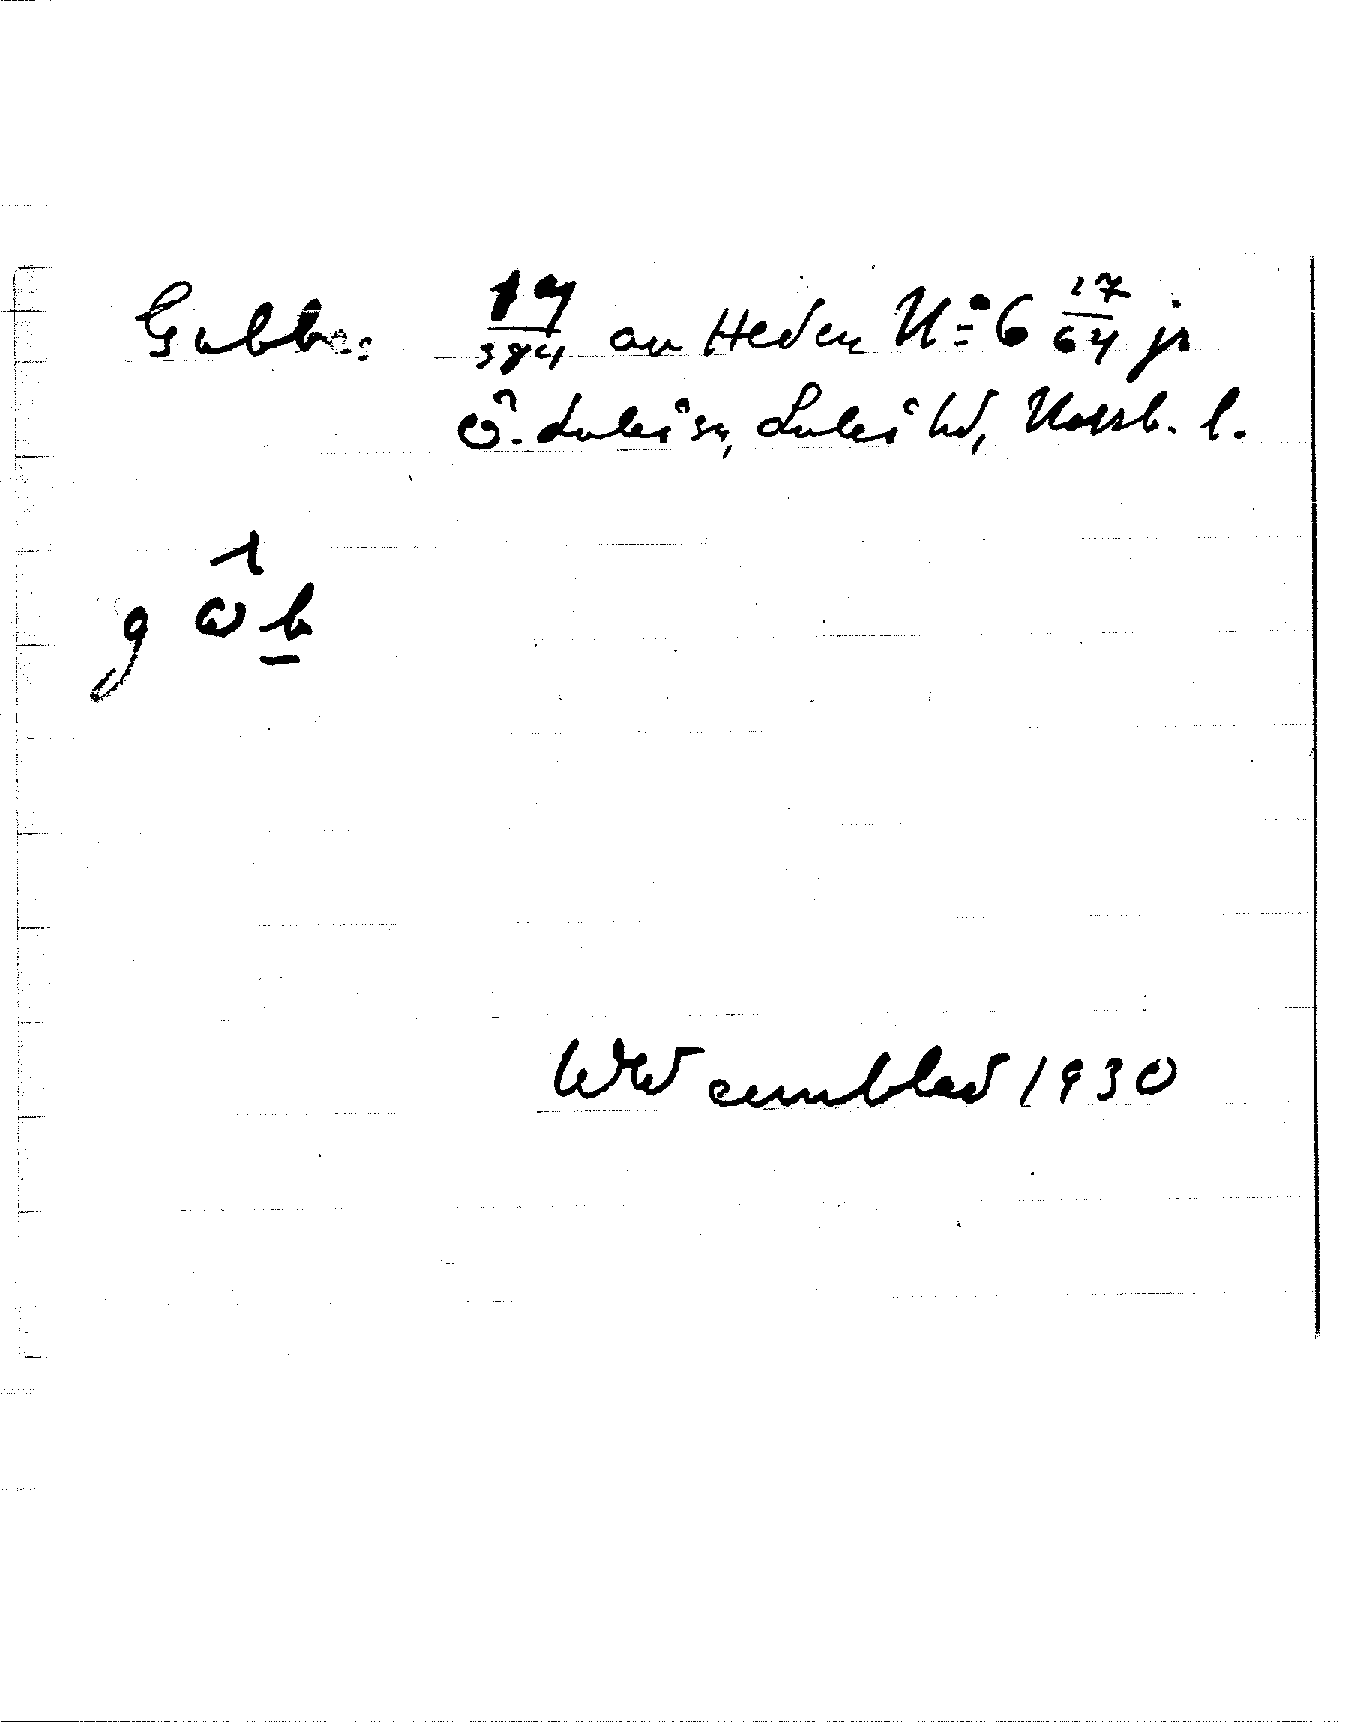 Gubbe: 17/384 av Heden N:o 6 17/64 jr
Ö. Luleå sn, Luleå hd, Norrb. l.
g ω b
W Wennblad 1930